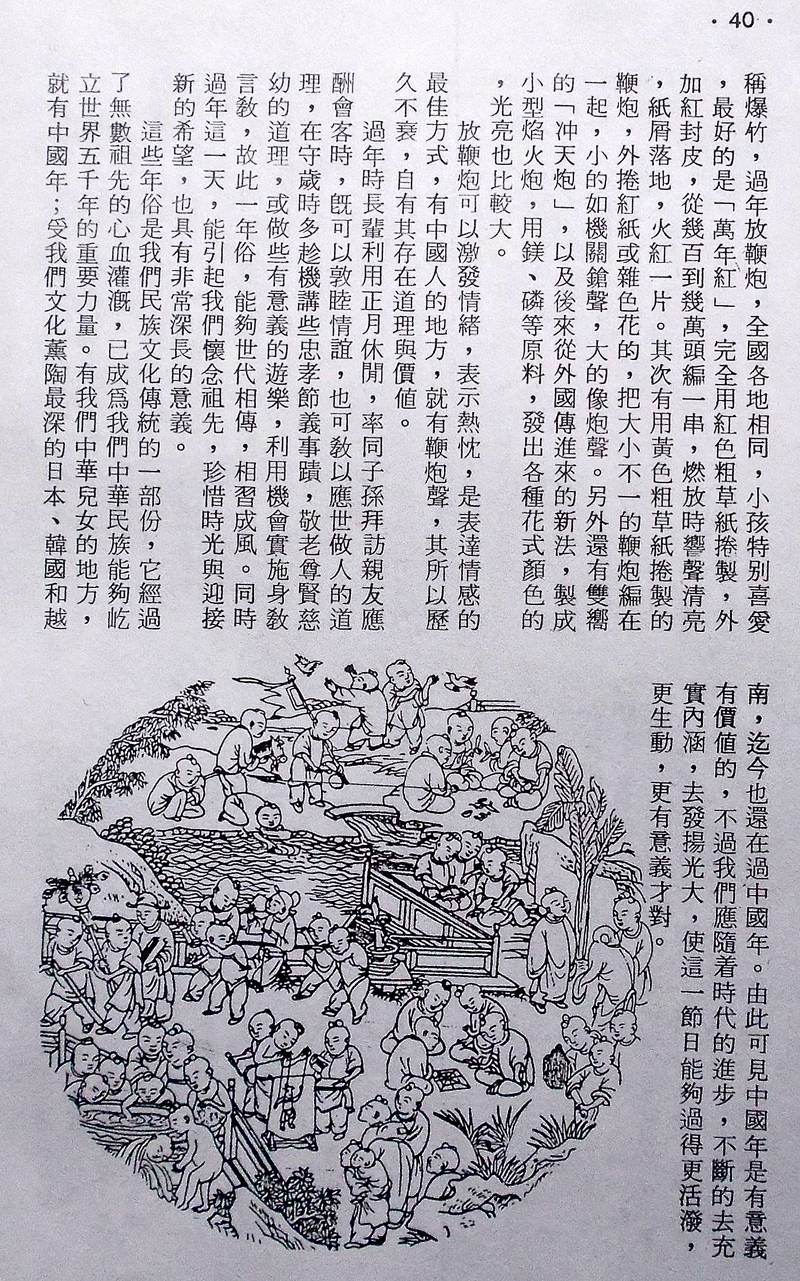 • 40 •
稱爆竹，過年放鞭炮，全國各地相同，小孩特別喜愛
，最好的是「萬年紅」，完全用紅色粗草紙捲製，外
加紅封皮，從幾百到幾萬頭編一串，燃放時響聲清亮
，紙屑落地，火紅一片。其次有用黃色粗草紙捲製的
鞭炮，外捲紅紙或雜色花的，把大小不一的鞭炮編在
一起，小的如機關鎗聲，大的像炮聲。另外還有雙嚮
的「冲天炮」，以及後來從外國傳進來的新法，製成
小型焰火炮，用鎂、磷等原料，發出各種花式顏色的
，光亮也比較大。
放鞭炮可以激發情緒，表示熱忱，是表達情感的
最佳方式，有中國人的地方，就有鞭炮聲，其所以歷
久不衰，自有其存在道理與價值。
過年時長輩利用正月休閒，率同子孫拜訪親友應
酬會客時，旣可以敦睦情誼，也可敎以應世做人的道
理，在守歲時多趁機講些忠孝節義事蹟，敬老尊賢慈
幼的道理，或做些有意義的遊樂，利用機會實施身敎
言敎，故此一年俗，能夠世代相傳，相習成風。同時
過年這一天，能引起我們懷念祖先，珍惜時光與迎接
新的希望，也具有非常深長的意義。
這些年俗是我們民族文化傳統的一部份，它經過
了無數祖先的心血灌漑，已成爲我們中華民族能夠屹
立世界五千年的重要力量。有我們中華兒女的地方，
就有中國年；受我們文化薰陶最深的日本、韓國和越
南，迄今也還在過中國年。由此可見中國年是有意義
有價値的，不過我們應隨着時代的進步，不斷的去充
實內涵，去發揚光大，使這一節日能夠過得更活潑，
更生動，更有意義才對。